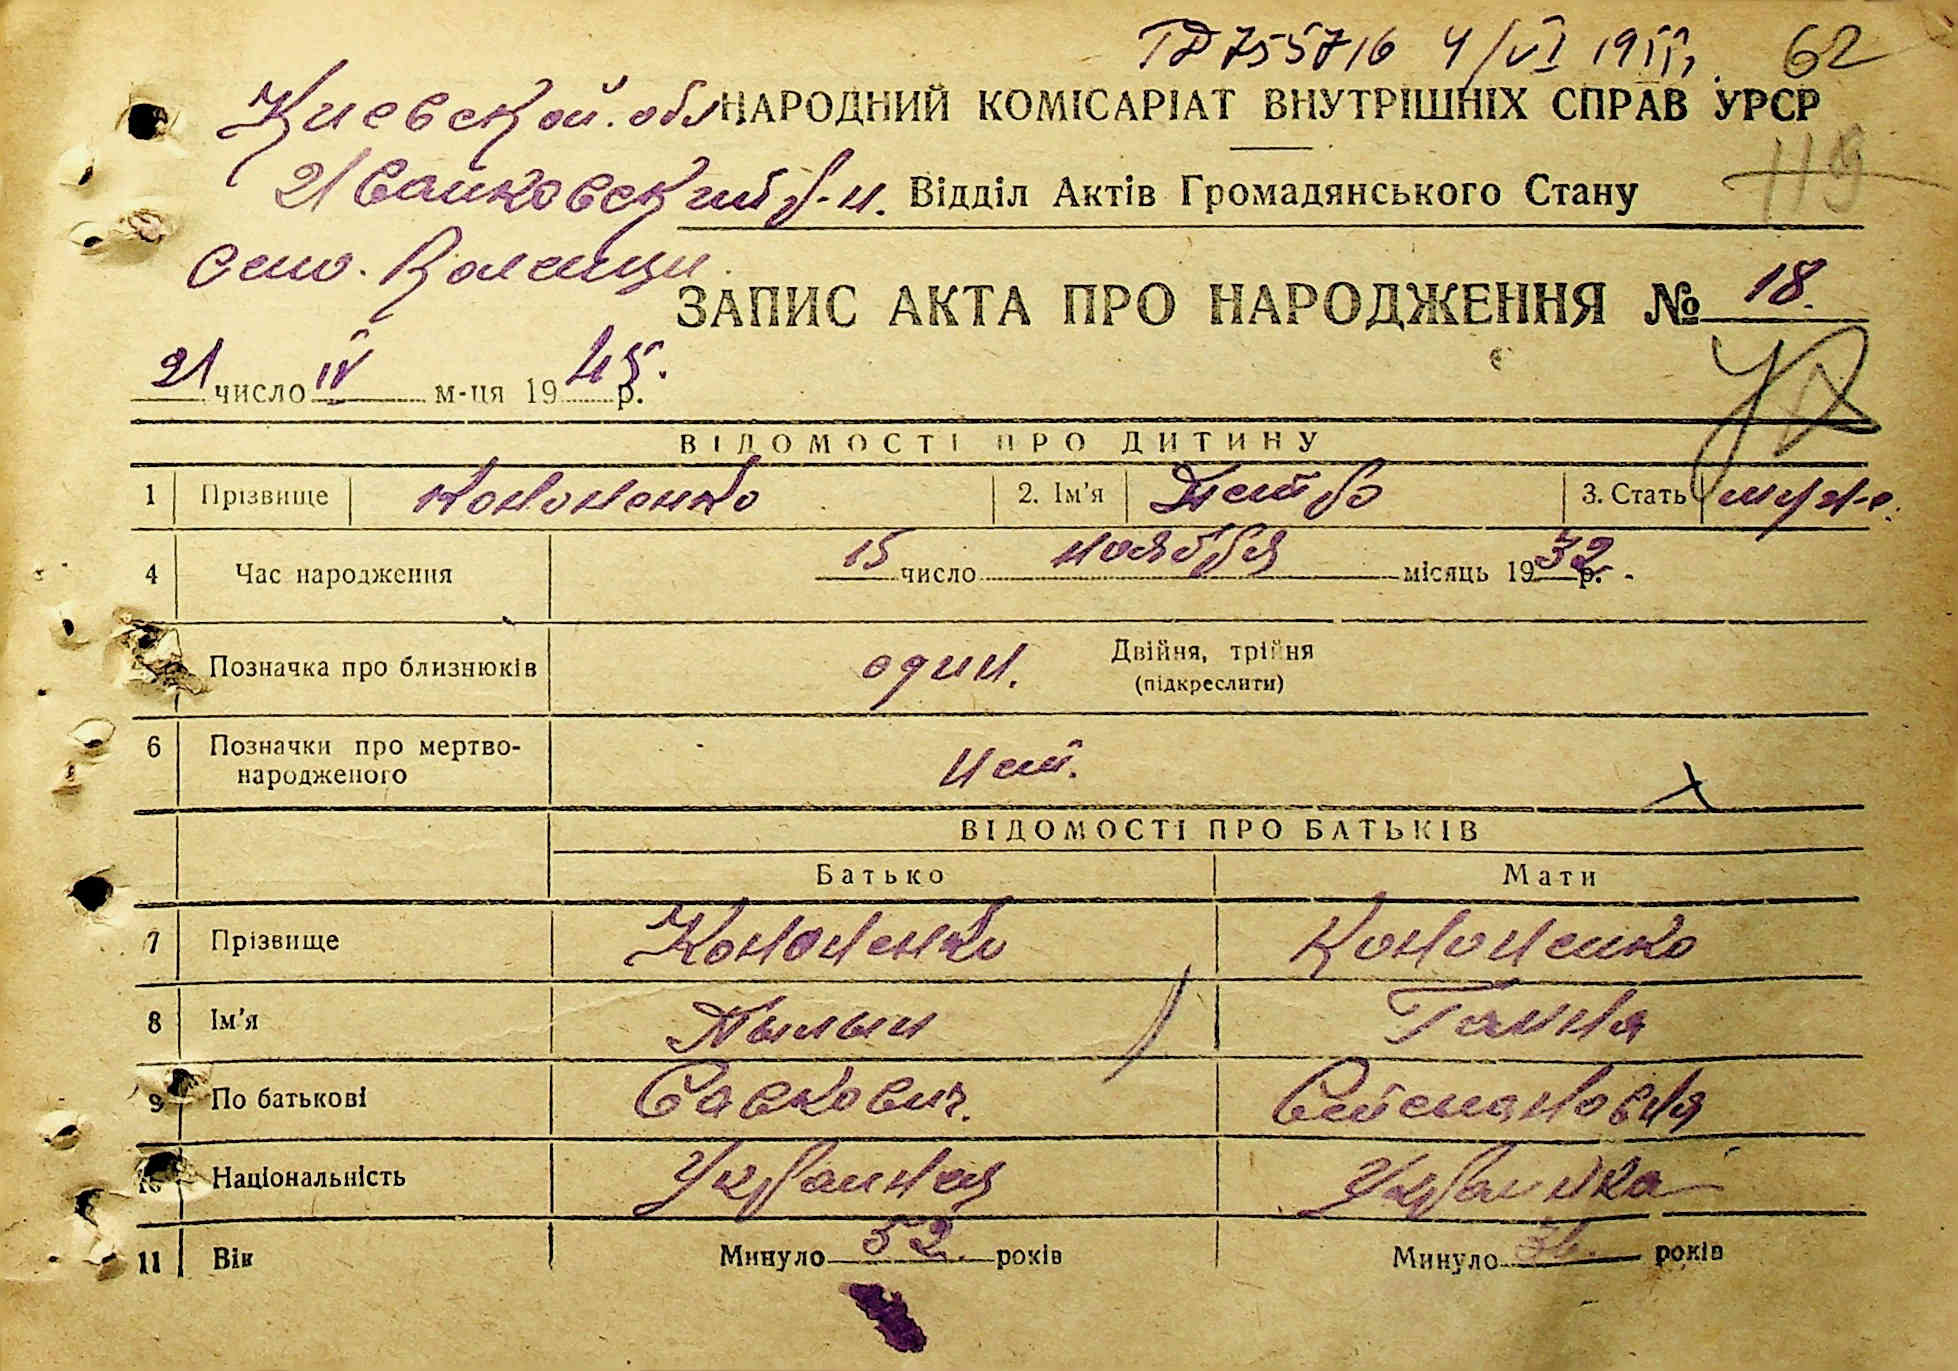 ТД 755716 4/VI 1955 г. 62
Киевской обл. НАРОДНИЙ КОМІСАРІАТ ВНУТРІШНІХ СПРАВ УРСР
119
Иванковский р-н. Відділ Актів Громадянського Стану
село
ЗАПИС АКТА ПРО НАРОДЖЕННЯ № 18.
21 число IV м-ця 1945. р.
ВІДОМОСТІ ПРО ДИТИНУ
1 Прізвище Кононенко 2. Ім'я Петро 3. Стать муж-е.
4 Час народження 15 число ноября місяць 1932 р.
Позначка про близнюків один. Двійня, трійня
(підкреслити)
6 Позначки про мертво-
народженого нет.
ВІДОМОСТІ ПРО БАТЬКІВ
Батько Мати
7 Прізвище Кононенко Кононенко
8 Ім'я Пылып Ганна
9 По батькові Савкович.
10 Національність Украинец Украинка
11 Вік Минуло 52. років Минуло років